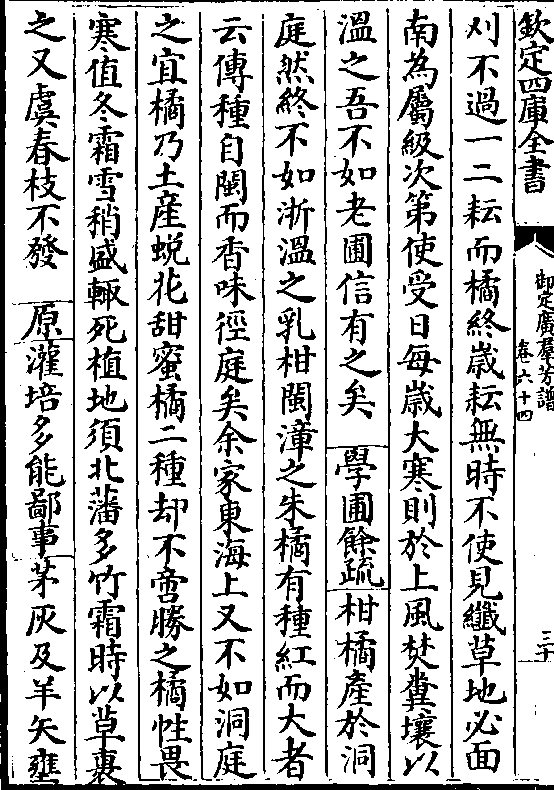 欽定四庫全書
御定廣羣芳譜
卷六十四
三十
刈不過一二耘而橘終歲耘無時不使見纖草地必面
南為屬級次第使受日每歲大寒則於上風焚糞壤以
溫之吾不如老圃信有之矣 學圃餘疏 柑橘產於洞
庭然終不如浙溫之乳柑閩漳之朱橘有種紅而大者
云傳種自閩而香味徑庭矣余家東海上又不如洞庭
之宜橘乃土産蜕花甜蜜橘二種却不啻勝之橘性畏
寒值冬霜雪稍盛輙死植地須北蕃多竹霜時以草裹
之又虞春枝不發 原 灌培 多能鄙事 茅灰及羊矢壅